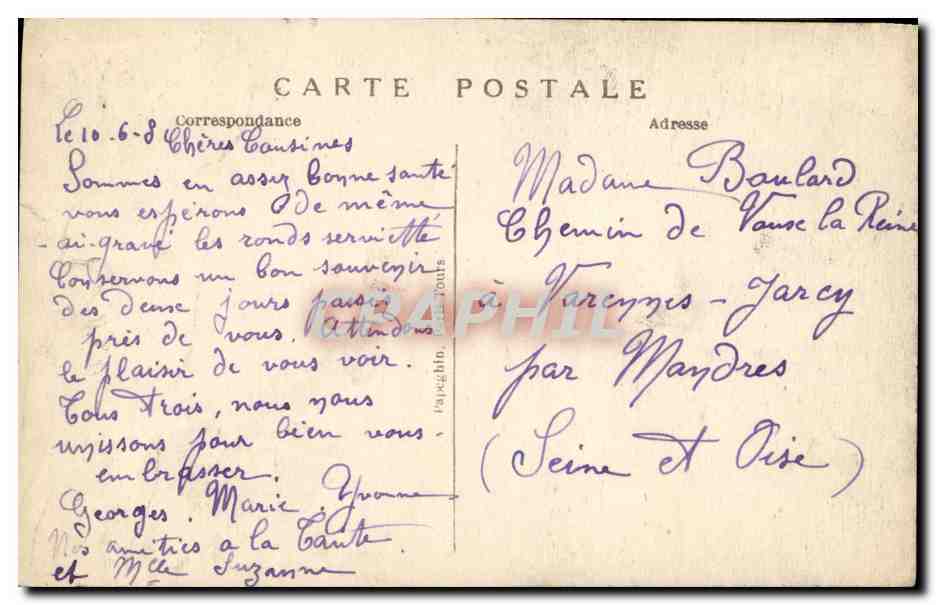 CARTE POSTALE
Correspondance
Le 10-6-8
Chères Cousines
Sommes en assez bonne santé
vous espérons de même
-ai-gravé les ronds serviette
Conservons un bon souvenir
des deux jours passés
près de vous. Attendons
le plaisir de vous voir.
Tous Trois, nous nous
unissons pour bien vous-
embrasser.
Georges. Marie. Yvonne
Nos amitiés a la Tante
et Mlle Suzanne
Papeghin, Paris-Tours
Adresse
Madame Boulard
Chemin de Vaux la Reine
à Varennes-Jarcy
par Mandres
(Seine et Oise)
DELPHIL